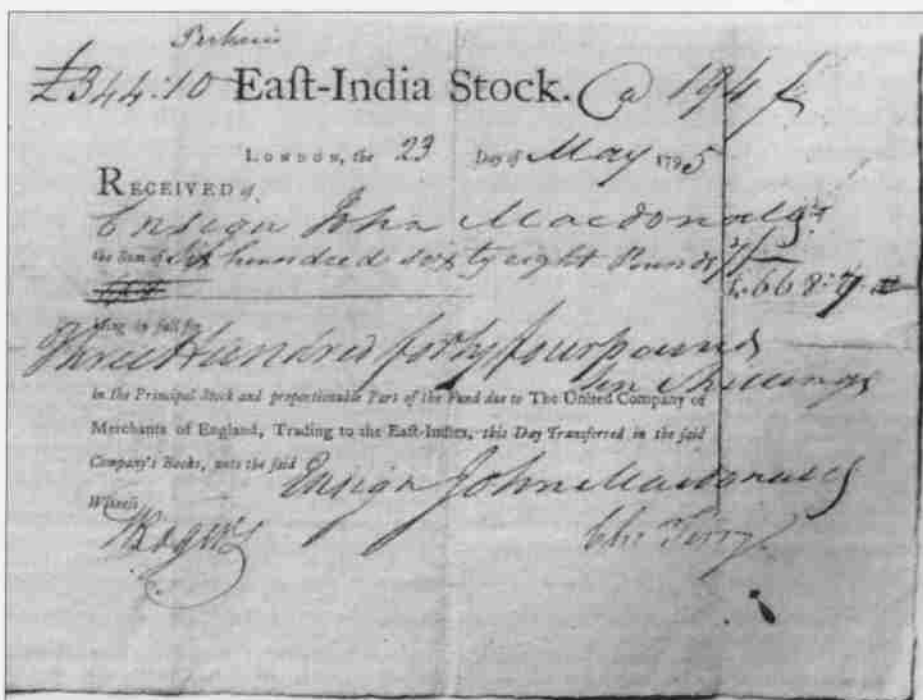 Perkins
£344:10 East-India Stock. @ 194
LONDON, the 23 Day of May 1795
RECEIVED of
Ensign John Macdonald
the Sum of Six hundred sixty eight Pounds 7/
£668:7
being in full for
Three Hundred forty four pounds
ten Shillings
in the Principal Stock and proportionable Part of the Fund due to The United Company of
Merchants of England, Trading to the East-Indies, this Day Transferred in the said
Company's Books, unto the said Ensign John Macdonald
Witness
Rogers
Terry